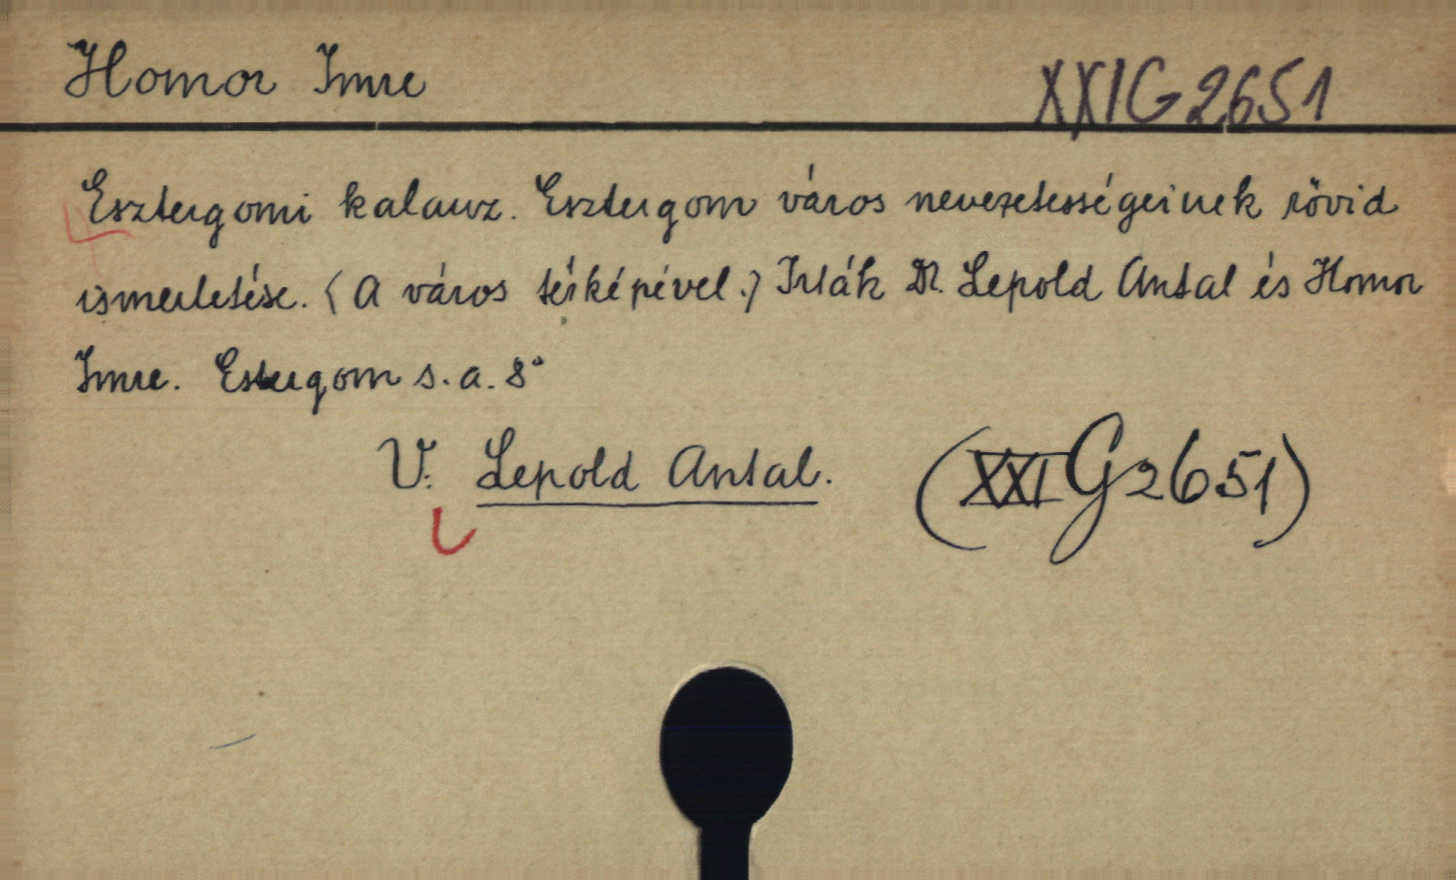 Homor Imre XXIG2651
Esztergomi kalauz. Esztergom város nevezetességeinek rövid
ismertetése. (A város térképével.) Irták Dr. Lepold Antal és Homor
Imre. Estergom s. a. 8°
V. Lepold Antal. (XXI G 2651)